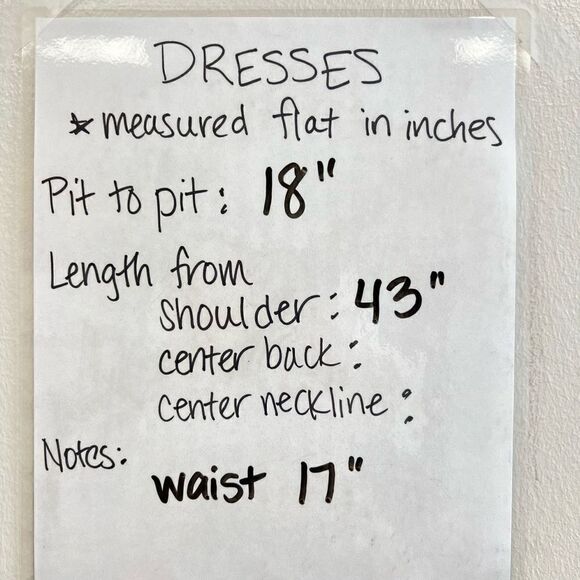 DRESSES
* measured flat in inches
Pit to pit: 18"
Length from
shoulder: 43"
center back:
center neckline:
Notes:
waist 17"